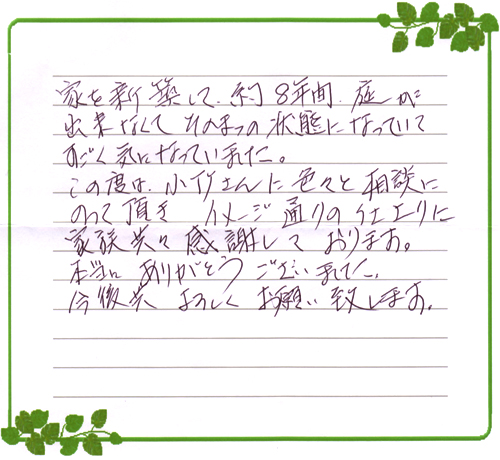 家を新築して、約8年間、庭が
出来なくてそのまつの状態になっていて
すごく気になっていました。
この度は、小竹さんに色々と相談に
のって頂き イメージ通りの仕上りに
家族共々感謝しております。
本当に ありがとう ございました。
今後共 よろしく お願い致します。